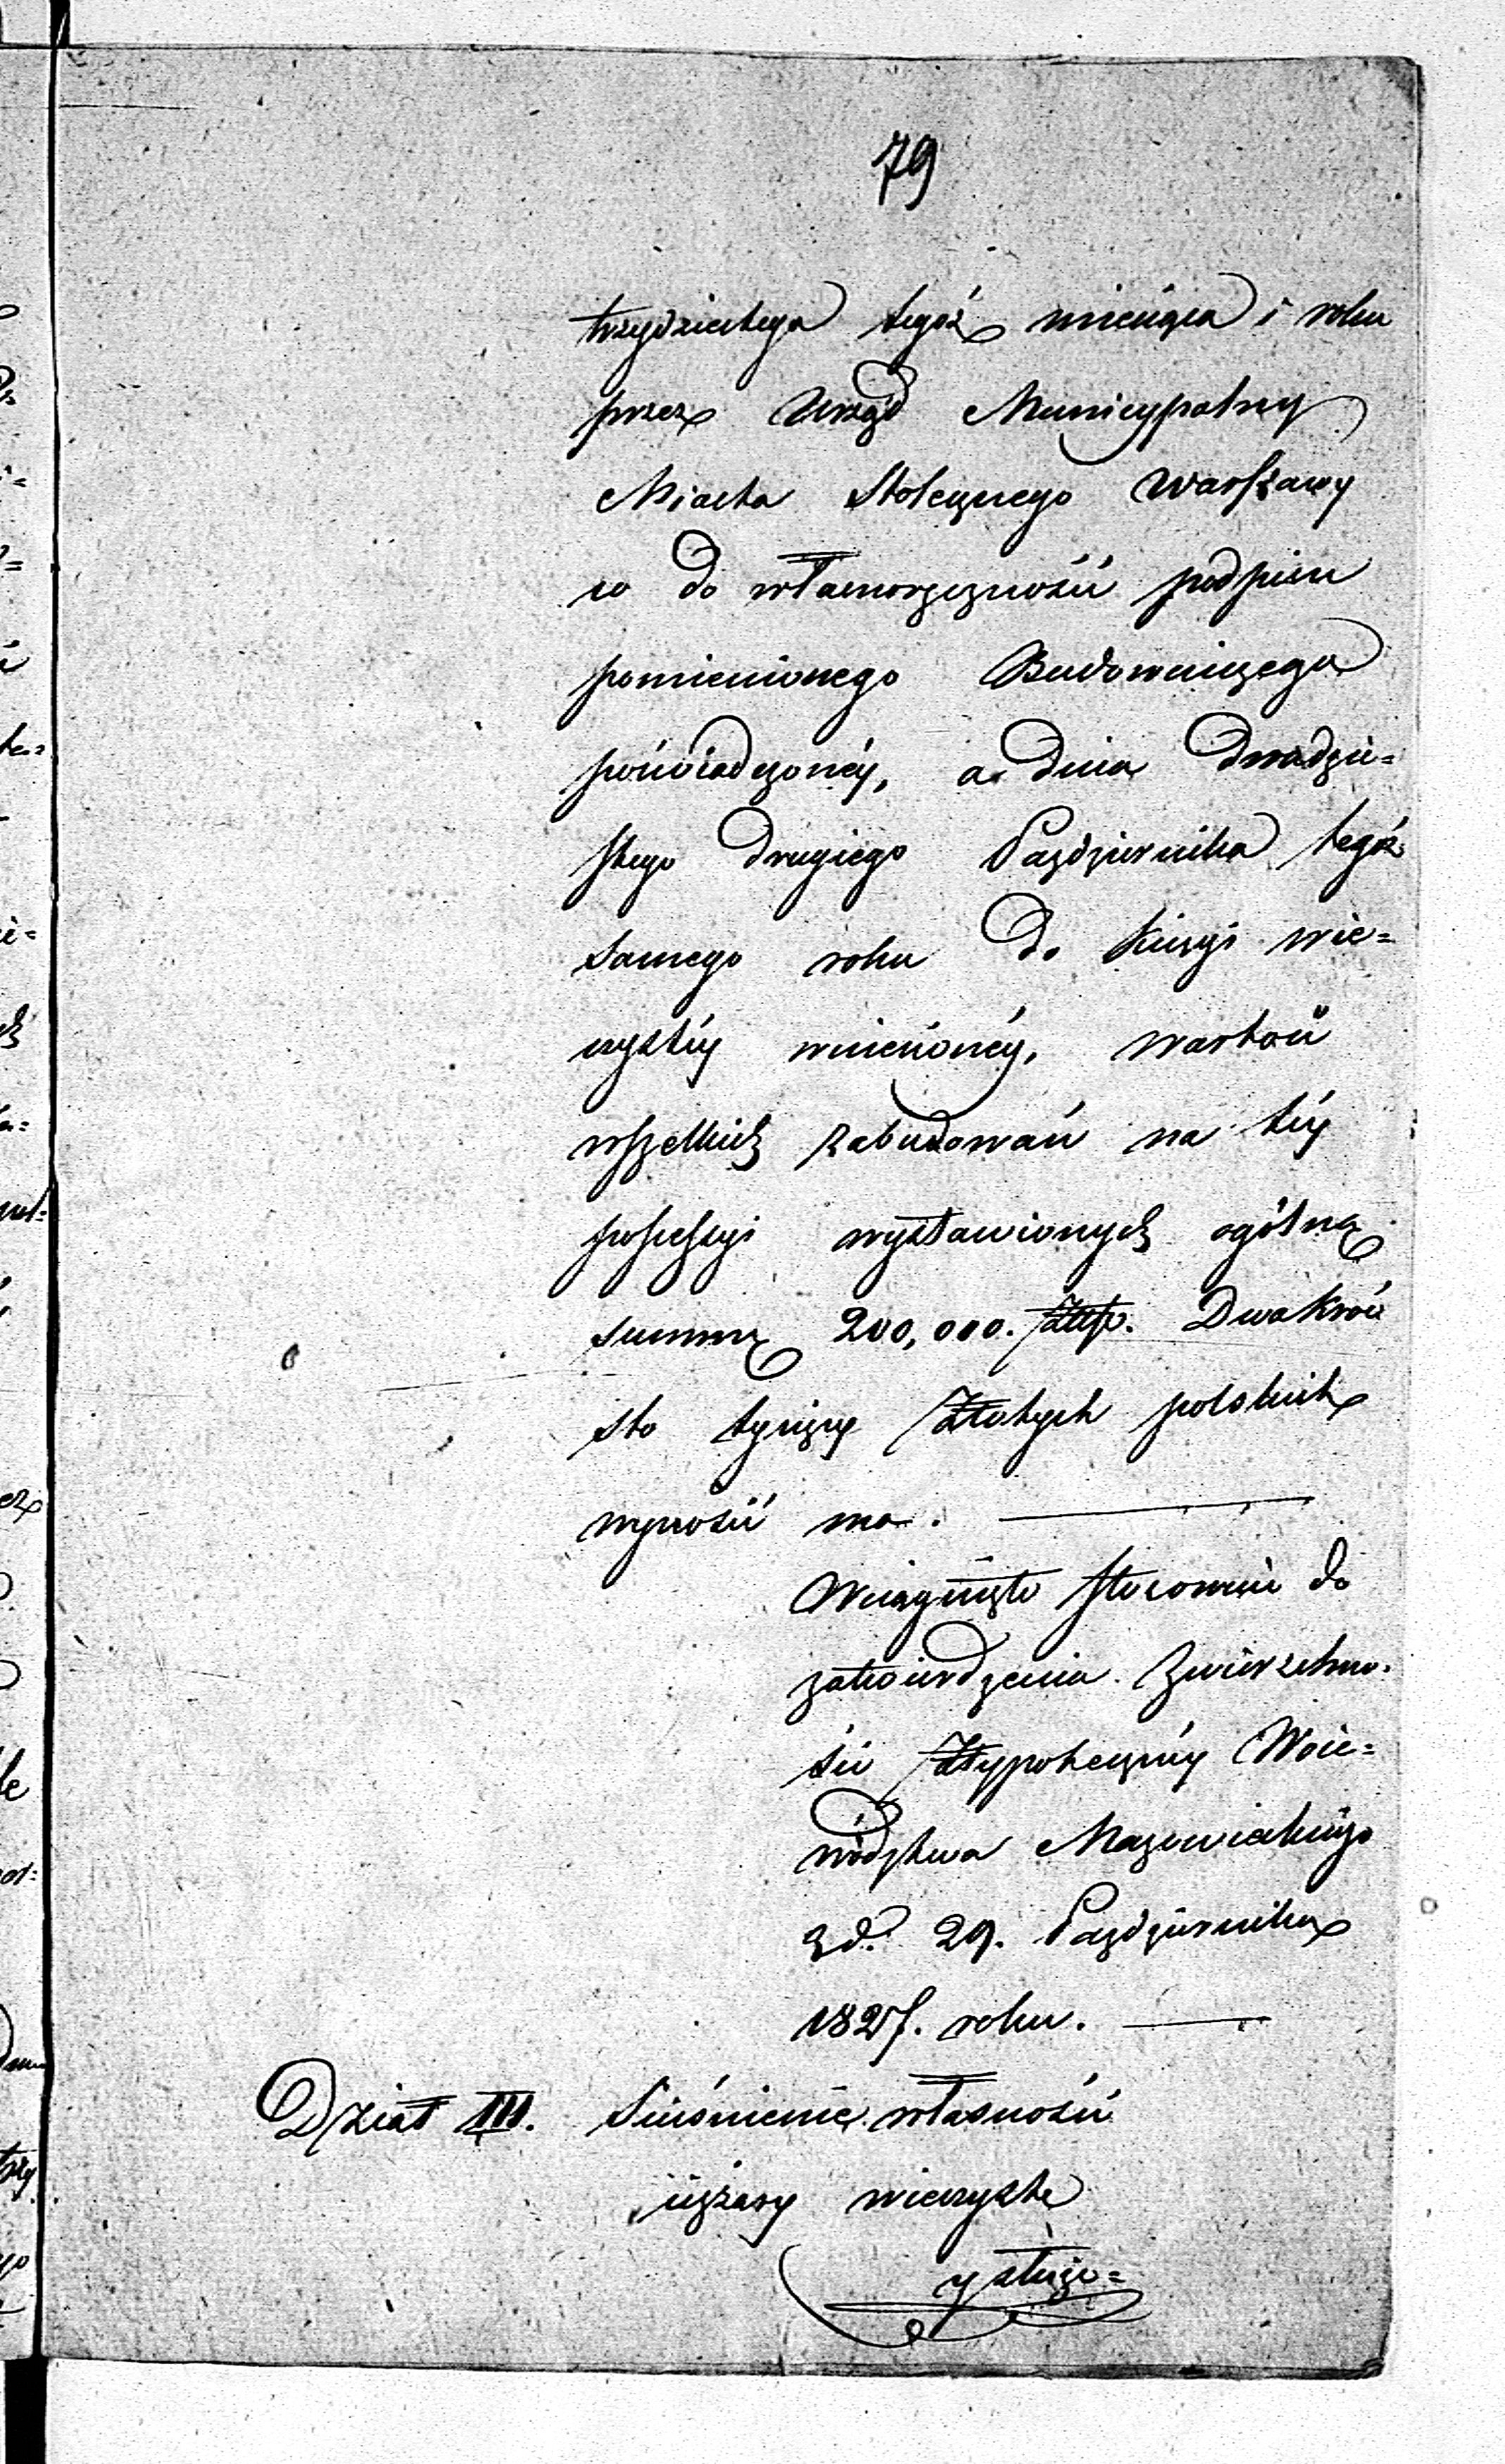 79
trzydziestego tegoż miesiąca i roku
przez Urząd Municypalny
Miasta Stołecznego Warszawy
co do własnoręczności podpisu
pomienionego Budowniczego
poświadczonéy, a dnia dwadzie=
stego drugiego Października tegoż
samego roku do księgi wie=
czystéy wniesionéy, wartość
wszelkich zabudowań na téy
possessyi wystawionych ogólną
summę 200,000. Złłp. Dwakroć
sto tysięcy Złotych polskich
wynosić ma.
Wciągnięto stosownie do
zatwierdzenia Zwierzchno-
ści Hypoteczney Woie=
wództwa Mazowieckiego
z d. 29. Października
1827. roku.
Dział III. Scieśnienie własności
i ciężary wieczyste
y służe=